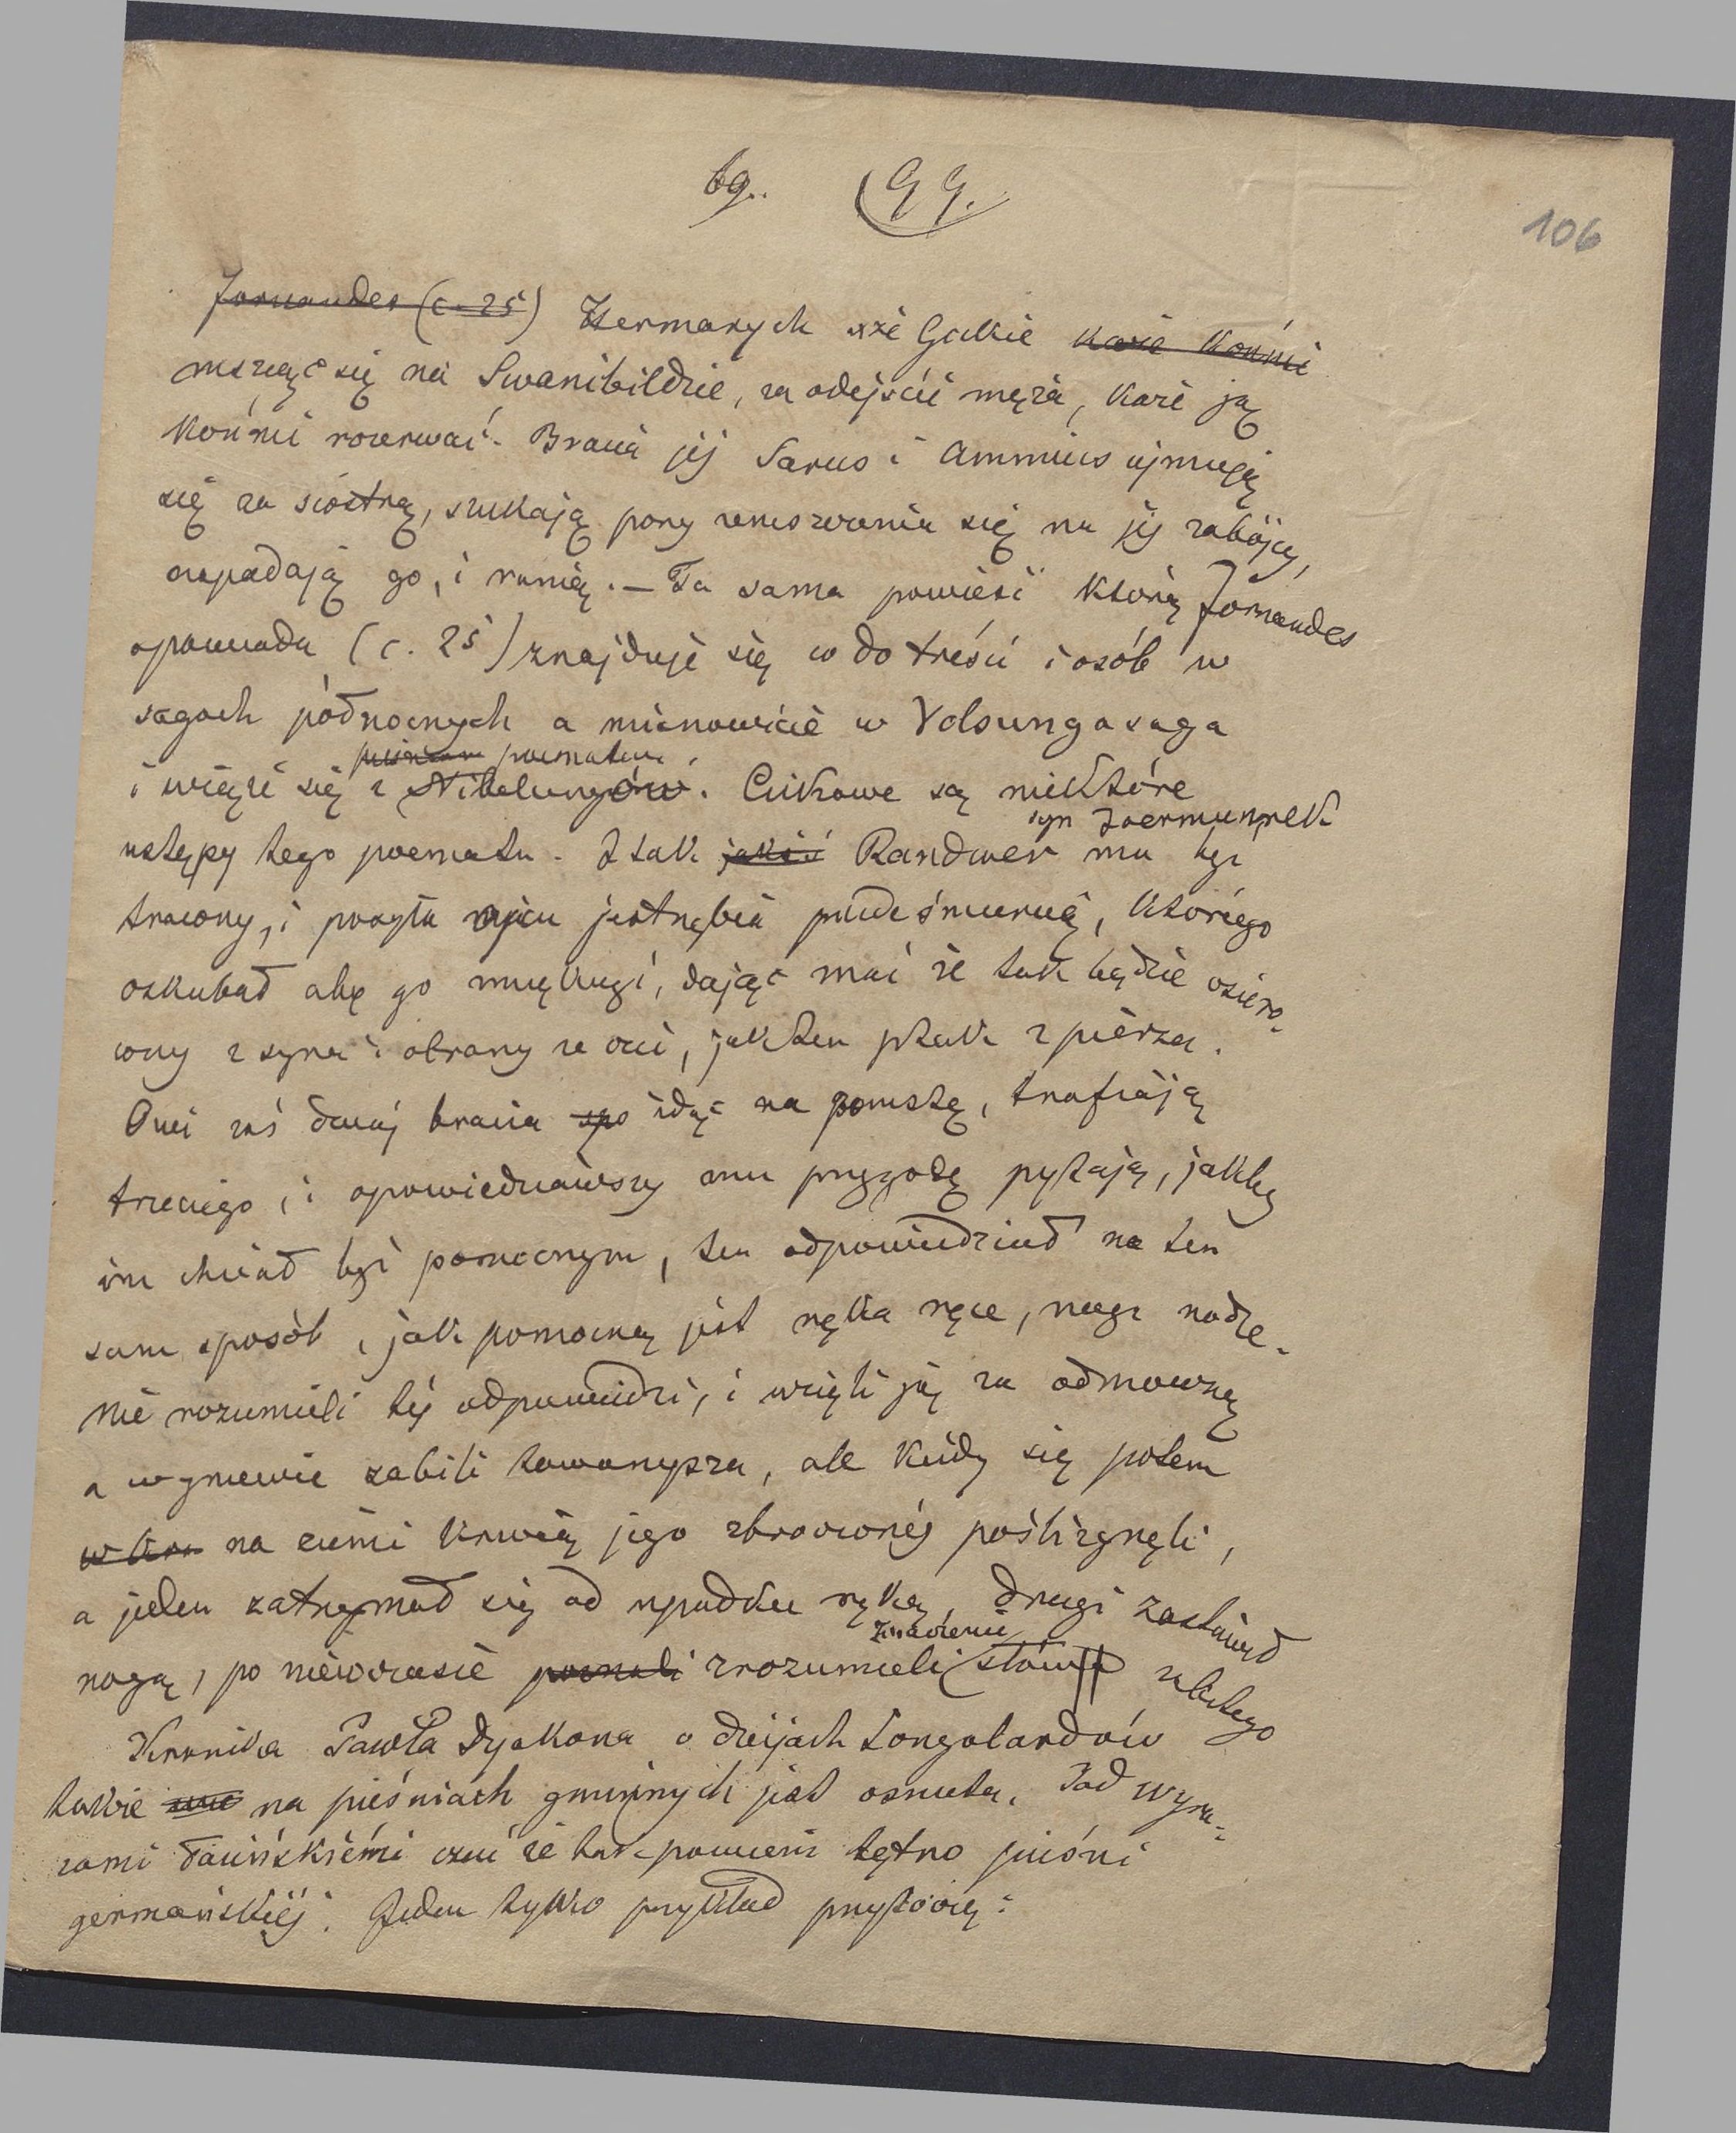 69. 99.
106
Jornandes (c. 25) Hermanrych xże Gockie każe końmi
mszcząc się na Swanibildzie, za odejście męża, każe ją
końmi rozerwać. Bracia jéj Sarus i Ammius ujmują
się za siostrą, szukają pory zemszczenia się na jéj zabójcy,
napadają go, i ranią. — Ta sama powieść którą Jornandes
opowiada (c. 25) znajduje się co do treści i osób w
sagach północnych a mianowicie w Volsungasaga
poematem
i wiąże się z Nibelungów. Ciekawe są niektóre
syn Joermunrek
ustępy tego poematu. I tak jakiś Randwer ma być
tracony, i posyła ojcu jastrzębia przede śmiercią, którego
oskubał aby go mięknąć, dając znać że tak będzie osiero-
cony z syna i obrany ze czci, jak ten ptak z pierza.
Owi zaś dwaj bracia idąc na pomstę, trafiają
trzeciego, i opowiedziawszy mu przygodę pytają, jakby
im chciał być pomocnym, ten odpowiedział na ten
sam sposób, jak pomocną jest ręka ręce, noga nodze.
Nie rozumieli téj odpowiedzi, i wzięli ją za odmowną
a w gniewie zabili towarzysza, ale kiedy się potem
na ziemi krwią jego zbroczonéj pośliznęli,
a jeden zatrzymał się od upadku ręką, drugi zastawił
znaczenie
nogą, po niewczasie poznali zrozumieli słów zabitego
Kronika Pawła Dyakona o dziejach Longobardów
także na pieśniach gminnych jest osnuta. Pod wyra-
zami łacińskiémi czuć że tak powiem tętno pieśni
germańskiéj. Jeden tylko przykład przytoczę: